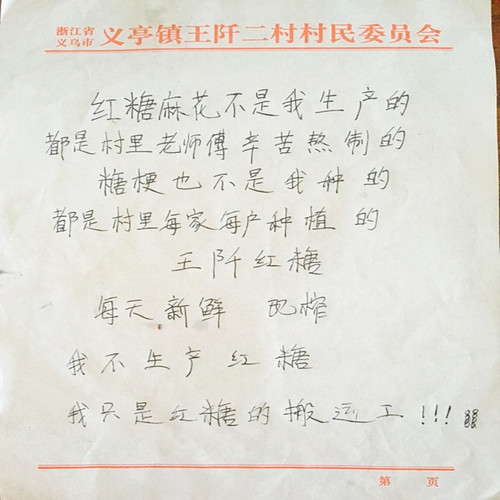 浙江省
义乌市 义亭镇王阡二村村民委员会
红糖麻花不是我生产的
都是村里老师傅辛苦熬制的
糖梗也不是我种的
都是村里每家每户种植的
王阡红糖
每天新鲜 现榨
我不生产红糖
我只是红糖的搬运工!!!
第 页